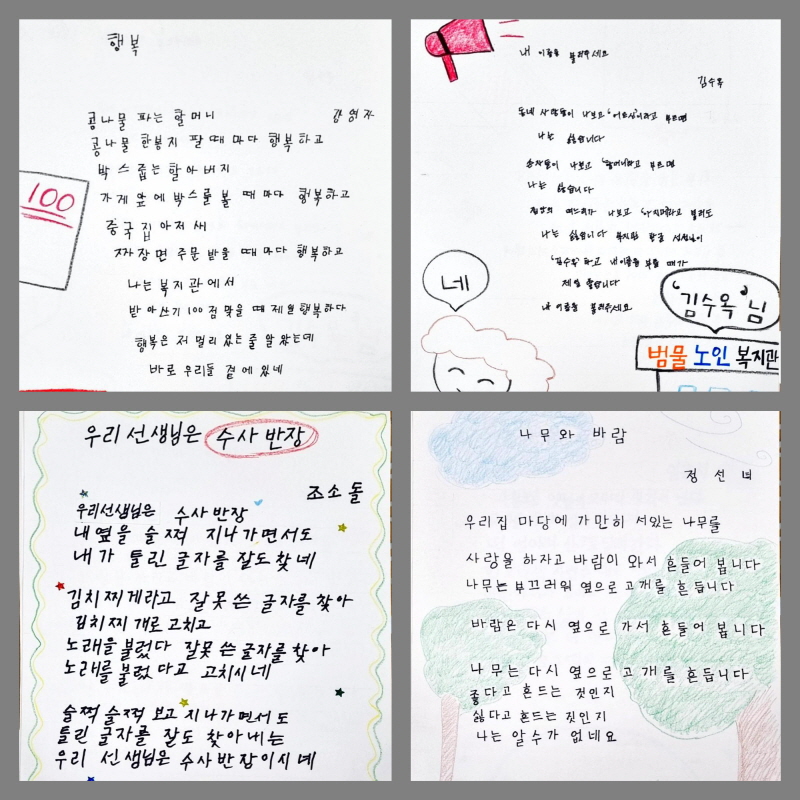 행복
강영자
콩나물 파는 할머니
콩나물 한봉지 팔 때 마다 행복하고
박스 줍는 할아버지
가게 앞에 박스를 볼 때 마다 행복하고
중국집 아저새
짜장면 주문 받을 때 마다 행복하고
나는 복지관에서
받아쓰기 100점 맞을 때 제일 행복하다
행복은 저 멀리 있는 줄 알았는데
바로 우리들 곁에 있네
100
내 이름을 불러주세요
김수옥
동네 사람들이 나보고 '어르신'이라고 부르면
나는 싫습니다
손자들이 나보고 '할머니'라고 부르면
나는 싫습니다
며느리가 나보고 불러도
나는 싫습니다 복지관 한글 선생님이
'김수옥'하고 내 이름을 부를 때가
제일 좋습니다
내 이름을 불러주세요
네
'김수옥'님
범물 노인 복지관
우리 선생님은 수사 반장
조소돌
우리선생님은 수사 반장
내 옆을 슬쩍 지나가면서도
내가 틀린 글자를 잘도 찾네
김치찌게라고 잘못 쓴 글자를 찾아
김치찌개로 고치고
노래을 불렀다 잘못 쓴 글자를 찾아
노래를 불렀다고 고치시네
슬쩍 슬쩍 보고 지나가면서도
틀린 글자를 잘도 찾아내는
우리 선생님은 수사 반장이시네
나무와 바람
정선녀
우리집 마당에 가만히 서있는 나무를
사랑을 하자고 바람이 와서 흔들어 봅니다
나무는 부끄러워 옆으로 고개를 흔듭니다
바람은 다시 옆으로 가서 흔들어 봅니다
나무는 다시 옆으로 고개를 흔듭니다
좋다고 흔드는 것인지
싫다고 흔드는 것인지
나는 알 수가 없네요